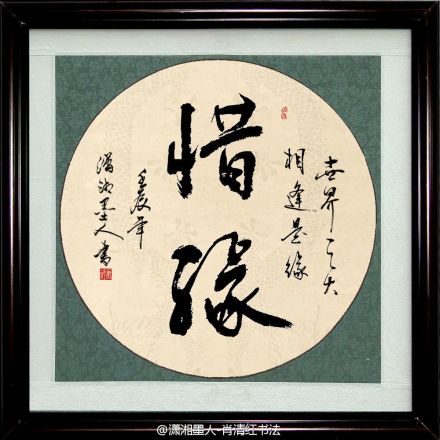 世界之大
相逢是缘
惜缘
壬辰年
潇湘墨人书
@潇湘墨人-肖清红书法